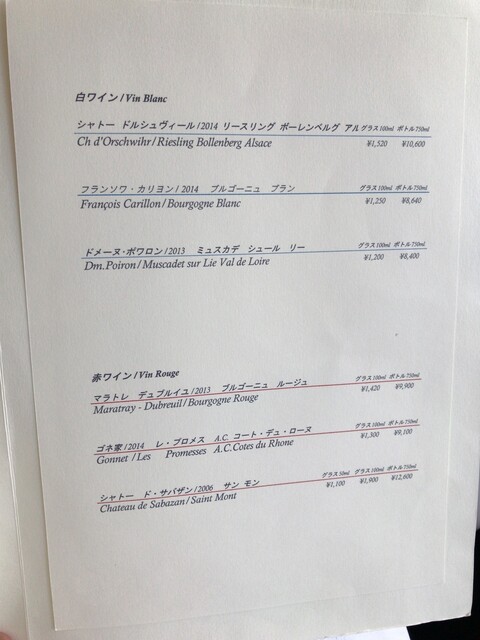 白ワイン/Vin Blanc
シャトー ドルシュヴィール/2014 リースリング ボーレンベルグ アル グラス100ml ボトル750ml
Ch d'Orschwihr/Riesling Bollenberg Alsace ¥1,520 ¥10,600
フランソワ・カリヨン/2014 ブルゴーニュ ブラン グラス100ml ボトル750ml
François Carillon/Bourgogne Blanc ¥1,250 ¥8,640
ドメーヌ・ポワロン/2013 ミュスカデ シュール リー グラス100ml ボトル750ml
Dm.Poiron/Muscadet sur Lie Val de Loire ¥1,200 ¥8,400
赤ワイン/Vin Rouge
マラトレ デュブルイユ/2013 ブルゴーニュ ルージュ グラス100ml ボトル750ml
Maratray - Dubreuil/Bourgogne Rouge ¥1,420 ¥9,900
ゴネ家/2014 レ・プロメス A.C. コート・デュ・ローヌ グラス100ml ボトル750ml
Gonnet /Les Promesses A.C.Cotes du Rhone ¥1,300 ¥9,100
シャトー ド・サバザン/2006 サン モン グラス50ml グラス100ml ボトル750ml
Chateau de Sabazan/Saint Mont ¥1,100 ¥1,900 ¥12,600